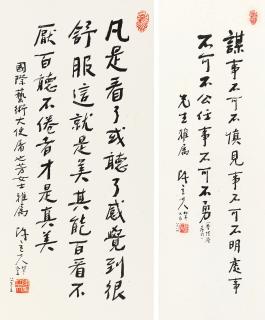 凡是看了或聽了感覺到很
舒服這就是美其能百看不
厭百聽不倦者才是真美
國際藝術大使
女士雅屬
謀事不可不慎見事不可不明處事
不可不公任事不可不勇
先生雅屬